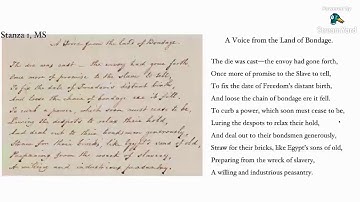 Stanza 1, MS
A Voice from the Land of Bondage.
The die was cast—the envoy had gone forth,
Once more of promise to the Slave to tell,
To fix the date of Freedom's distant birth,
And loose the chain of bondage ere it fell.
To curb a power, which soon must cease to be,
Luring the despots to relax their hold,
And deal out to their bondsmen generously,
Straw for their bricks, like Egypt's sons of old,
Preparing from the wreck of slavery,
A willing and industrious peasantry.
A Voice from the Land of Bondage.
The die was cast—the envoy had gone forth,
Once more of promise to the Slave to tell,
To fix the date of Freedom's distant birth,
And loose the chain of bondage ere it fell.
To curb a power, which soon must cease to be,
Luring the despots to relax their hold,
And deal out to their bondsmen generously,
Straw for their bricks, like Egypt's sons of old,
Preparing from the wreck of slavery,
A willing and industrious peasantry.